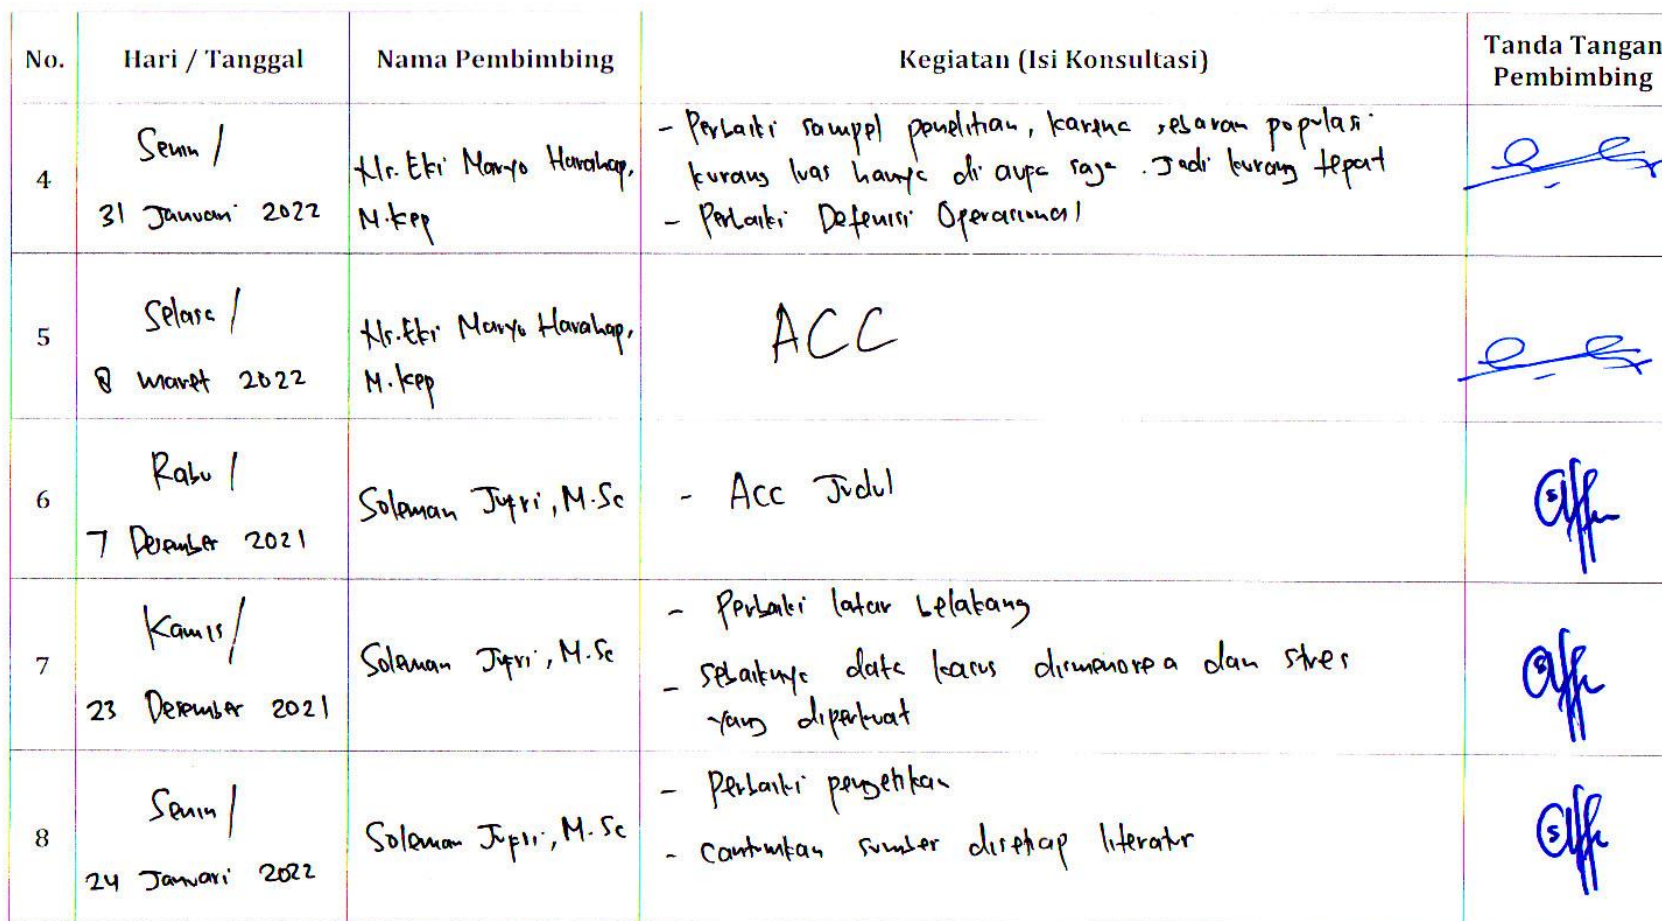 No.
Hari / Tanggal
Nama Pembimbing
Kegiatan (Isi Konsultasi)
Tanda Tangan
Pembimbing
4
Senin /
31 Januari 2022
Ns. Eki Maryo Harahap,
M.kep
- Perbaiki sampel penelitian, karena sebaran populasi
kurang luas hanya di saja. Jadi kurang tepat
- Perbaiki Defenisi Operasional
5
Selasa /
8 maret 2022
Ns. Eki Maryo Harahap,
M.kep
ACC
6
Rabu /
7 Desember 2021
Soleman Jufri, M.Sc
- Acc Judul
7
Kamis /
23 Desember 2021
Soleman Jufri, M.Sc
- Perbaiki latar belakang
- sebaiknya data kasus dismenorea dan stres
yang diperkuat
8
Senin /
24 Januari 2022
Soleman Jufri, M.Sc
- Perbaiki pengetikan
- cantumkan sumber disetiap literatur